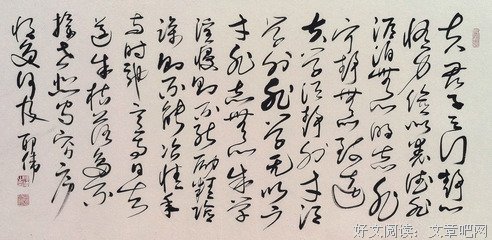 夫君子之行静以
修身俭以养德非
澹泊无以明志非
宁静无以致远
夫学须静也才须
学也非学无以广
才非志无以成学
淫慢则不能励精险
躁则不能冶性年
与时驰意与日去
遂成枯落多不
接世悲守穷庐
将复何及
好文阅读：文章吧网